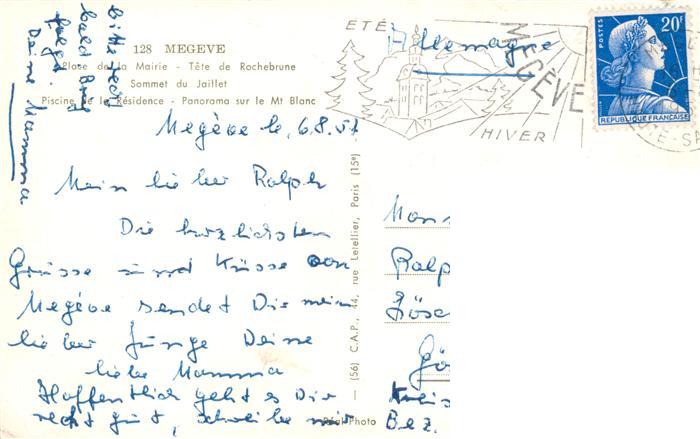 128 MEGEVE
Place de la Mairie - Tête de Rochebrune
Sommet du Jaillet
Piscine de la Résidence - Panorama sur le Mt Blanc
Megève le, 6.8.57
Mein lieber Ralph
Die herzlichsten
Grüsse und Küsse von
Megève sendet Dir mein
lieber Junge Deine
liebe Mamma
Hoffentlich geht es Dir
recht gut, schreibe mir
bitte recht
bald Brief
folgt.
Deine Mamma
(56) C.A.P., 44, rue Letellier, Paris (15e)
Réel Photo
ÉTÉ
MEGÈVE
HIVER
Allemagne
POSTES
20F
REPUBLIQUE FRANÇAISE
Mons
Ralp
Lösc
Gös
Kreis
Bez.